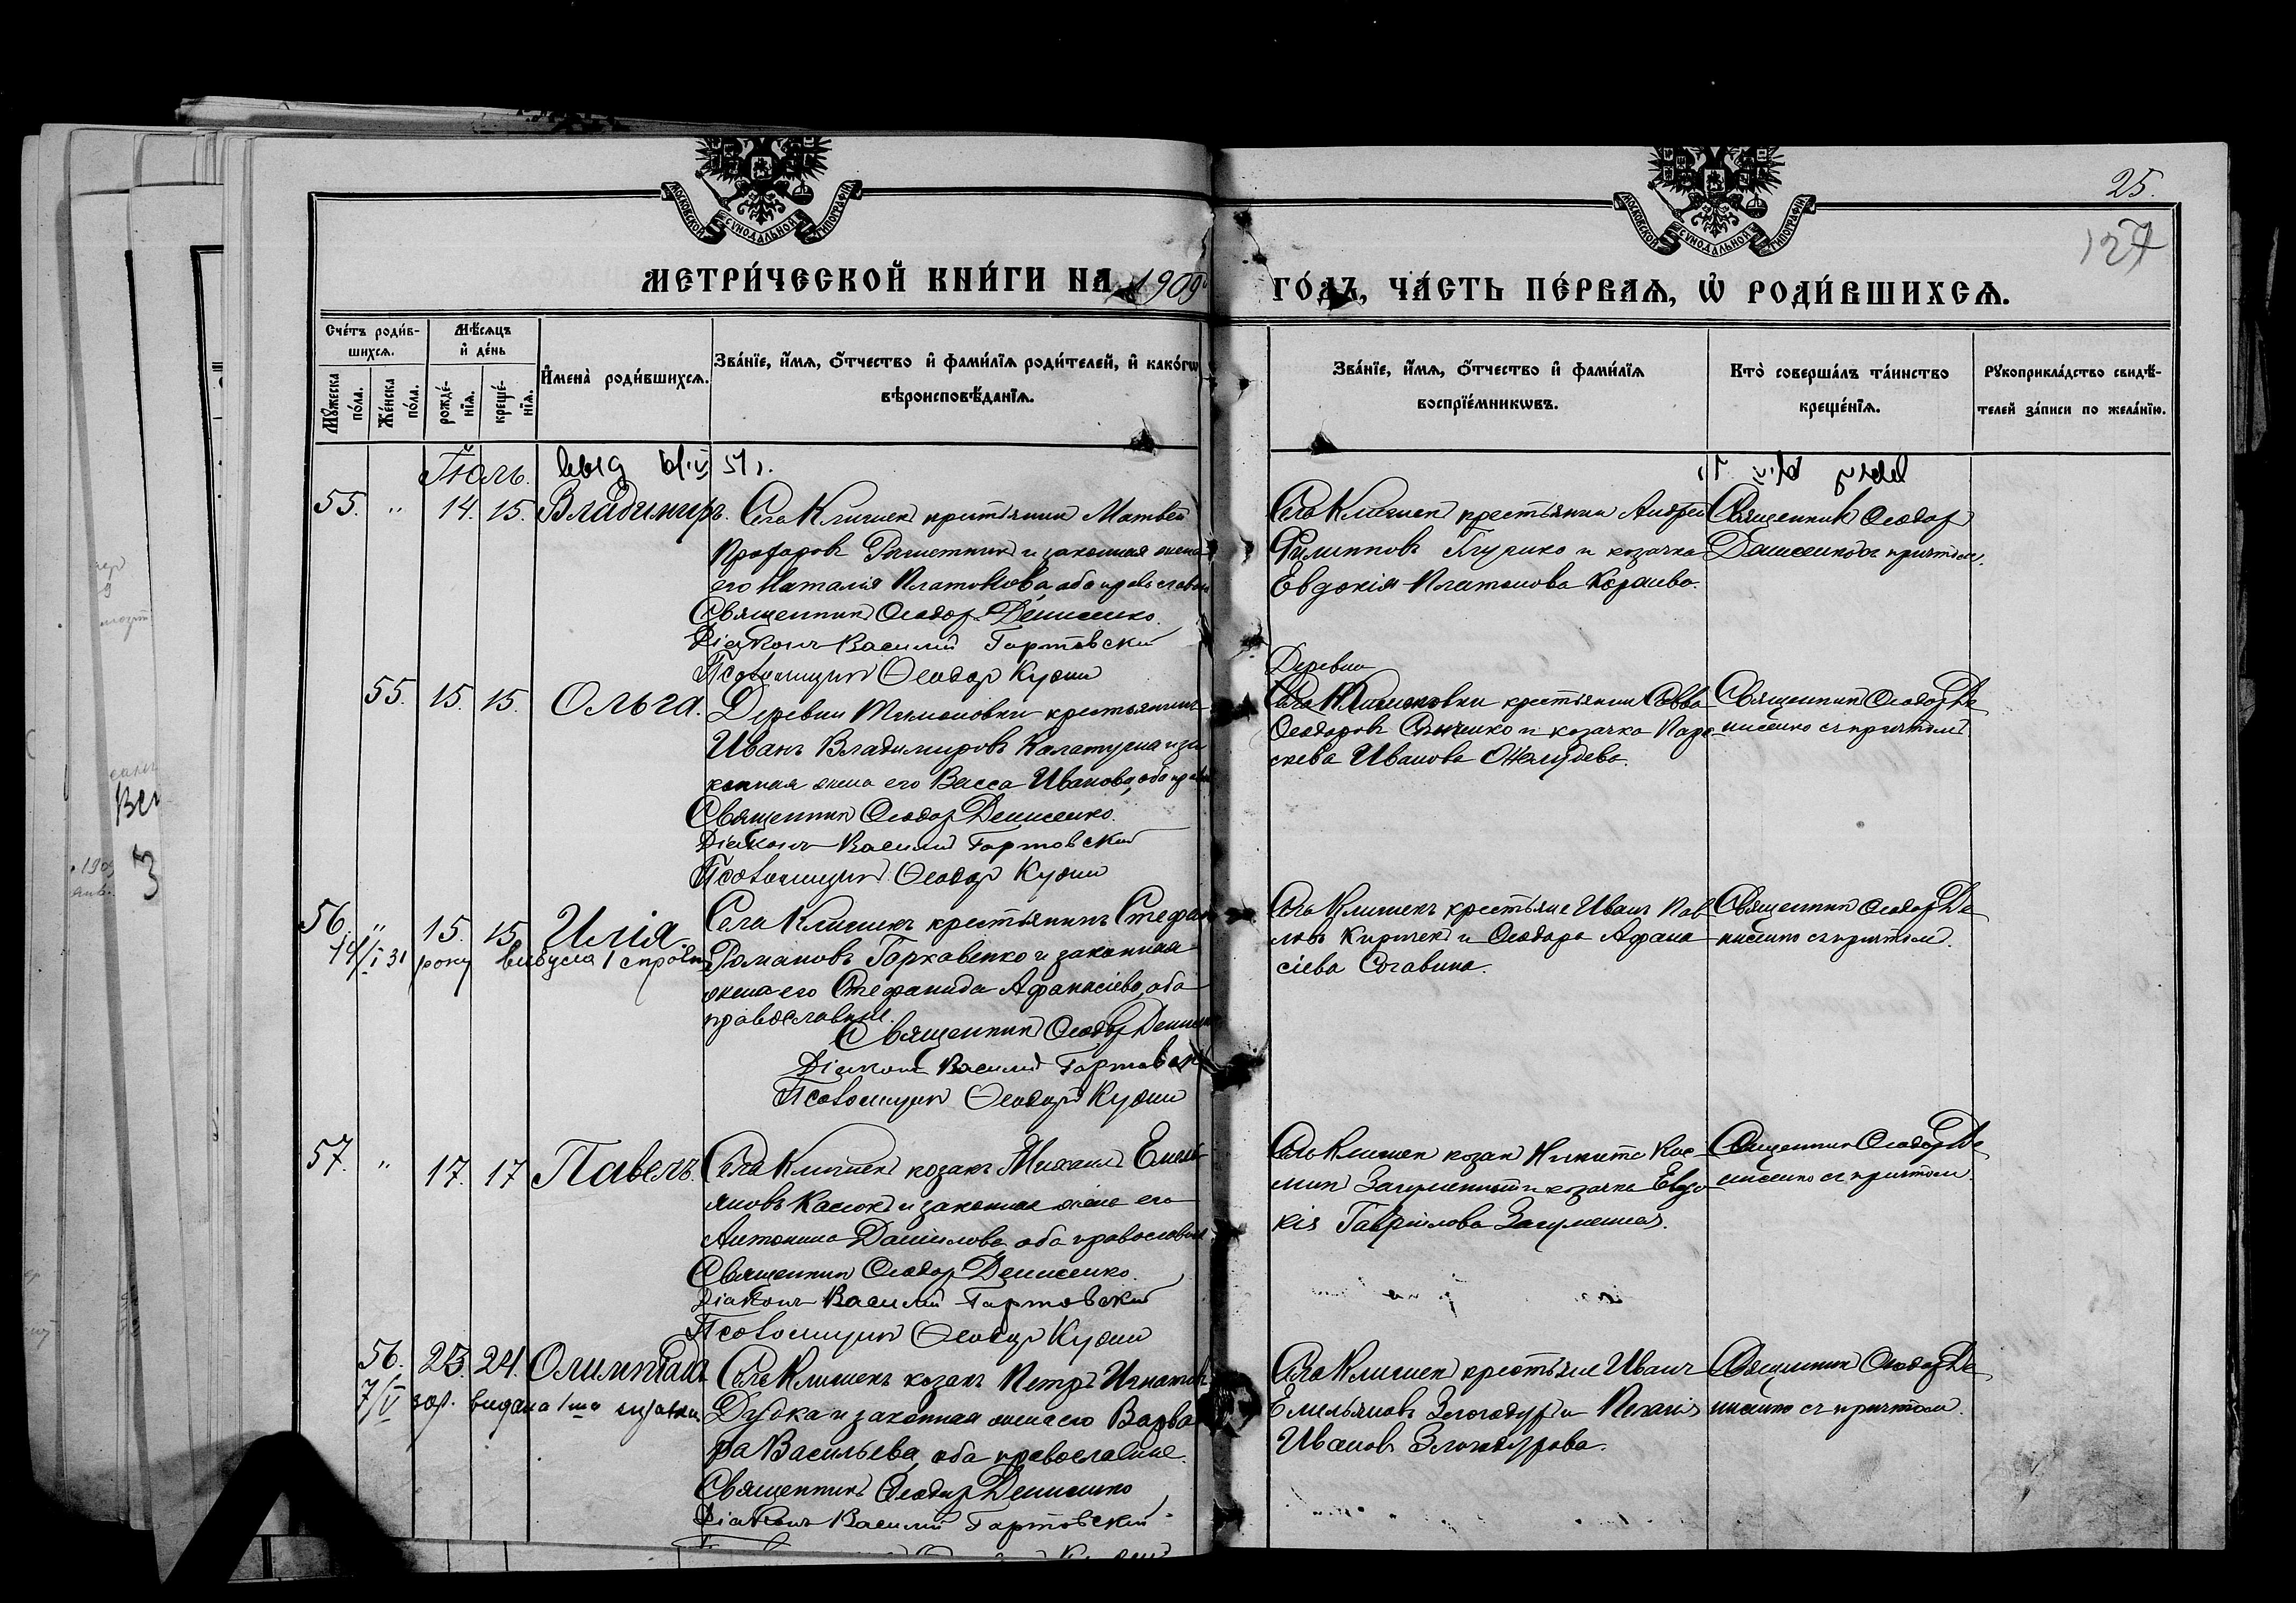 МОСКОВСКОЙ СѴНОДАЛЬНОЙ ТИПОГРАФІИ
МОСКОВСКОЙ СѴНОДАЛЬНОЙ ТИПОГРАФІИ
25.
127
МЕТРИ́ЧЕСКОЙ КНИ́ГИ НА 1909
ГО́ДЪ, ЧА́СТЬ ПЕ́РВАѦ, Ѡ҆ РОДИ́ВШИХСѦ.
Сче́тъ роди́в-
шихсѧ.
Мꙋ́жеска по́ла.
Же́нска по́ла.
Мѣ́сѧцъ
и҆ де́нь
рожде́-
нїѧ.
креще́-
нїѧ.
И҆мена̀ роди́вшихсѧ.
Зва́нїе, и҆́мѧ, ѻ҆́тчество и҆ фами́лїѧ роди́телей, и҆ како́гѡ
вѣроисповѣ́данїѧ.
Зва́нїе, и҆́мѧ, ѻ҆́тчество и҆ фами́лїѧ
воспрїе́мникѡвъ.
Кто̀ соверша́лъ та́инство
креще́нїѧ.
Рꙋкоприкла́дство свидѣ́-
телей за́писи по жела́нїю.
Іюль.
51 г.
55. " 14. 15. Владимиръ.
Села Клишекъ крестьянин Матвей
Прохоровъ и законная жена
его Наталія Платонова, оба православн
Священникъ Ѳеодор Денисенко.
Діаконъ Василій Гортовский
Псаломщикъ Ѳеодор Кушин
Села Клишек крестьянин Андрей
Филипповъ и козачка
Евдокія Платонова
Священник Ѳеодор
Денисенко съ причтом.
55. 15. 15. Ольга.
Деревни Тимоновки крестьянинъ
Иванъ Владимировъ Калатуша и за
конная жена его Васса Иванова, оба прав
Священник Ѳеодор Денисенко.
Діаконъ Василій Гортовский
Псаломщикъ Ѳеодор Кушин
Деревни
Тимоновки крестьянин Савва
Ѳеодоровъ и козачка Пара
скева Иванова
Священник Ѳеодор Де
нисенко съ причтом
56. " 15. 15. Илія.
14/I 31 року видуса 1
Села Клишекъ крестьянинъ Стефан
Романовъ Горкавенко и законная
жена его Стефанида Афанасіева, оба
православные.
Священник Ѳеодор Денисенко
Діаконъ Василій Гортовски
Псаломщикъ Ѳеодор Кушин
Села Клишекъ крестьяне Иванъ Пав
ловъ и Ѳеодора Афана
сіева
Священник Ѳеодор Де
нисенко съ причтом.
57. " 17. 17 Павелъ.
Села Клишекъ козакъ Михаилъ Емель
яновъ Касюк и законная жена его
Антонина Даниилова, оба православные
Священник Ѳеодор Денисенко.
Діаконъ Василій Гортовский
Псаломщикъ Ѳеодор Кушин
Села Клишек козак Никита Кос
мин Загуменный и козачка Евдо
кія Гавриилова Загуменная.
Священник Ѳеодор Де
нисенко съ причтом.
56. 23. 24. Олимпіада
7/V видана
Села Клишекъ козакъ Петръ Игнатов
Дудка и законная жена его Варва
ра Васильева, оба православные.
Священникъ Ѳеодор Денисенко
Діаконъ Василій Гортовский
Села Клишек крестьяне Иванъ
Емельяновъ и Пелагія
Иванова
Священник Ѳеодор Де
нисенко съ причтом.